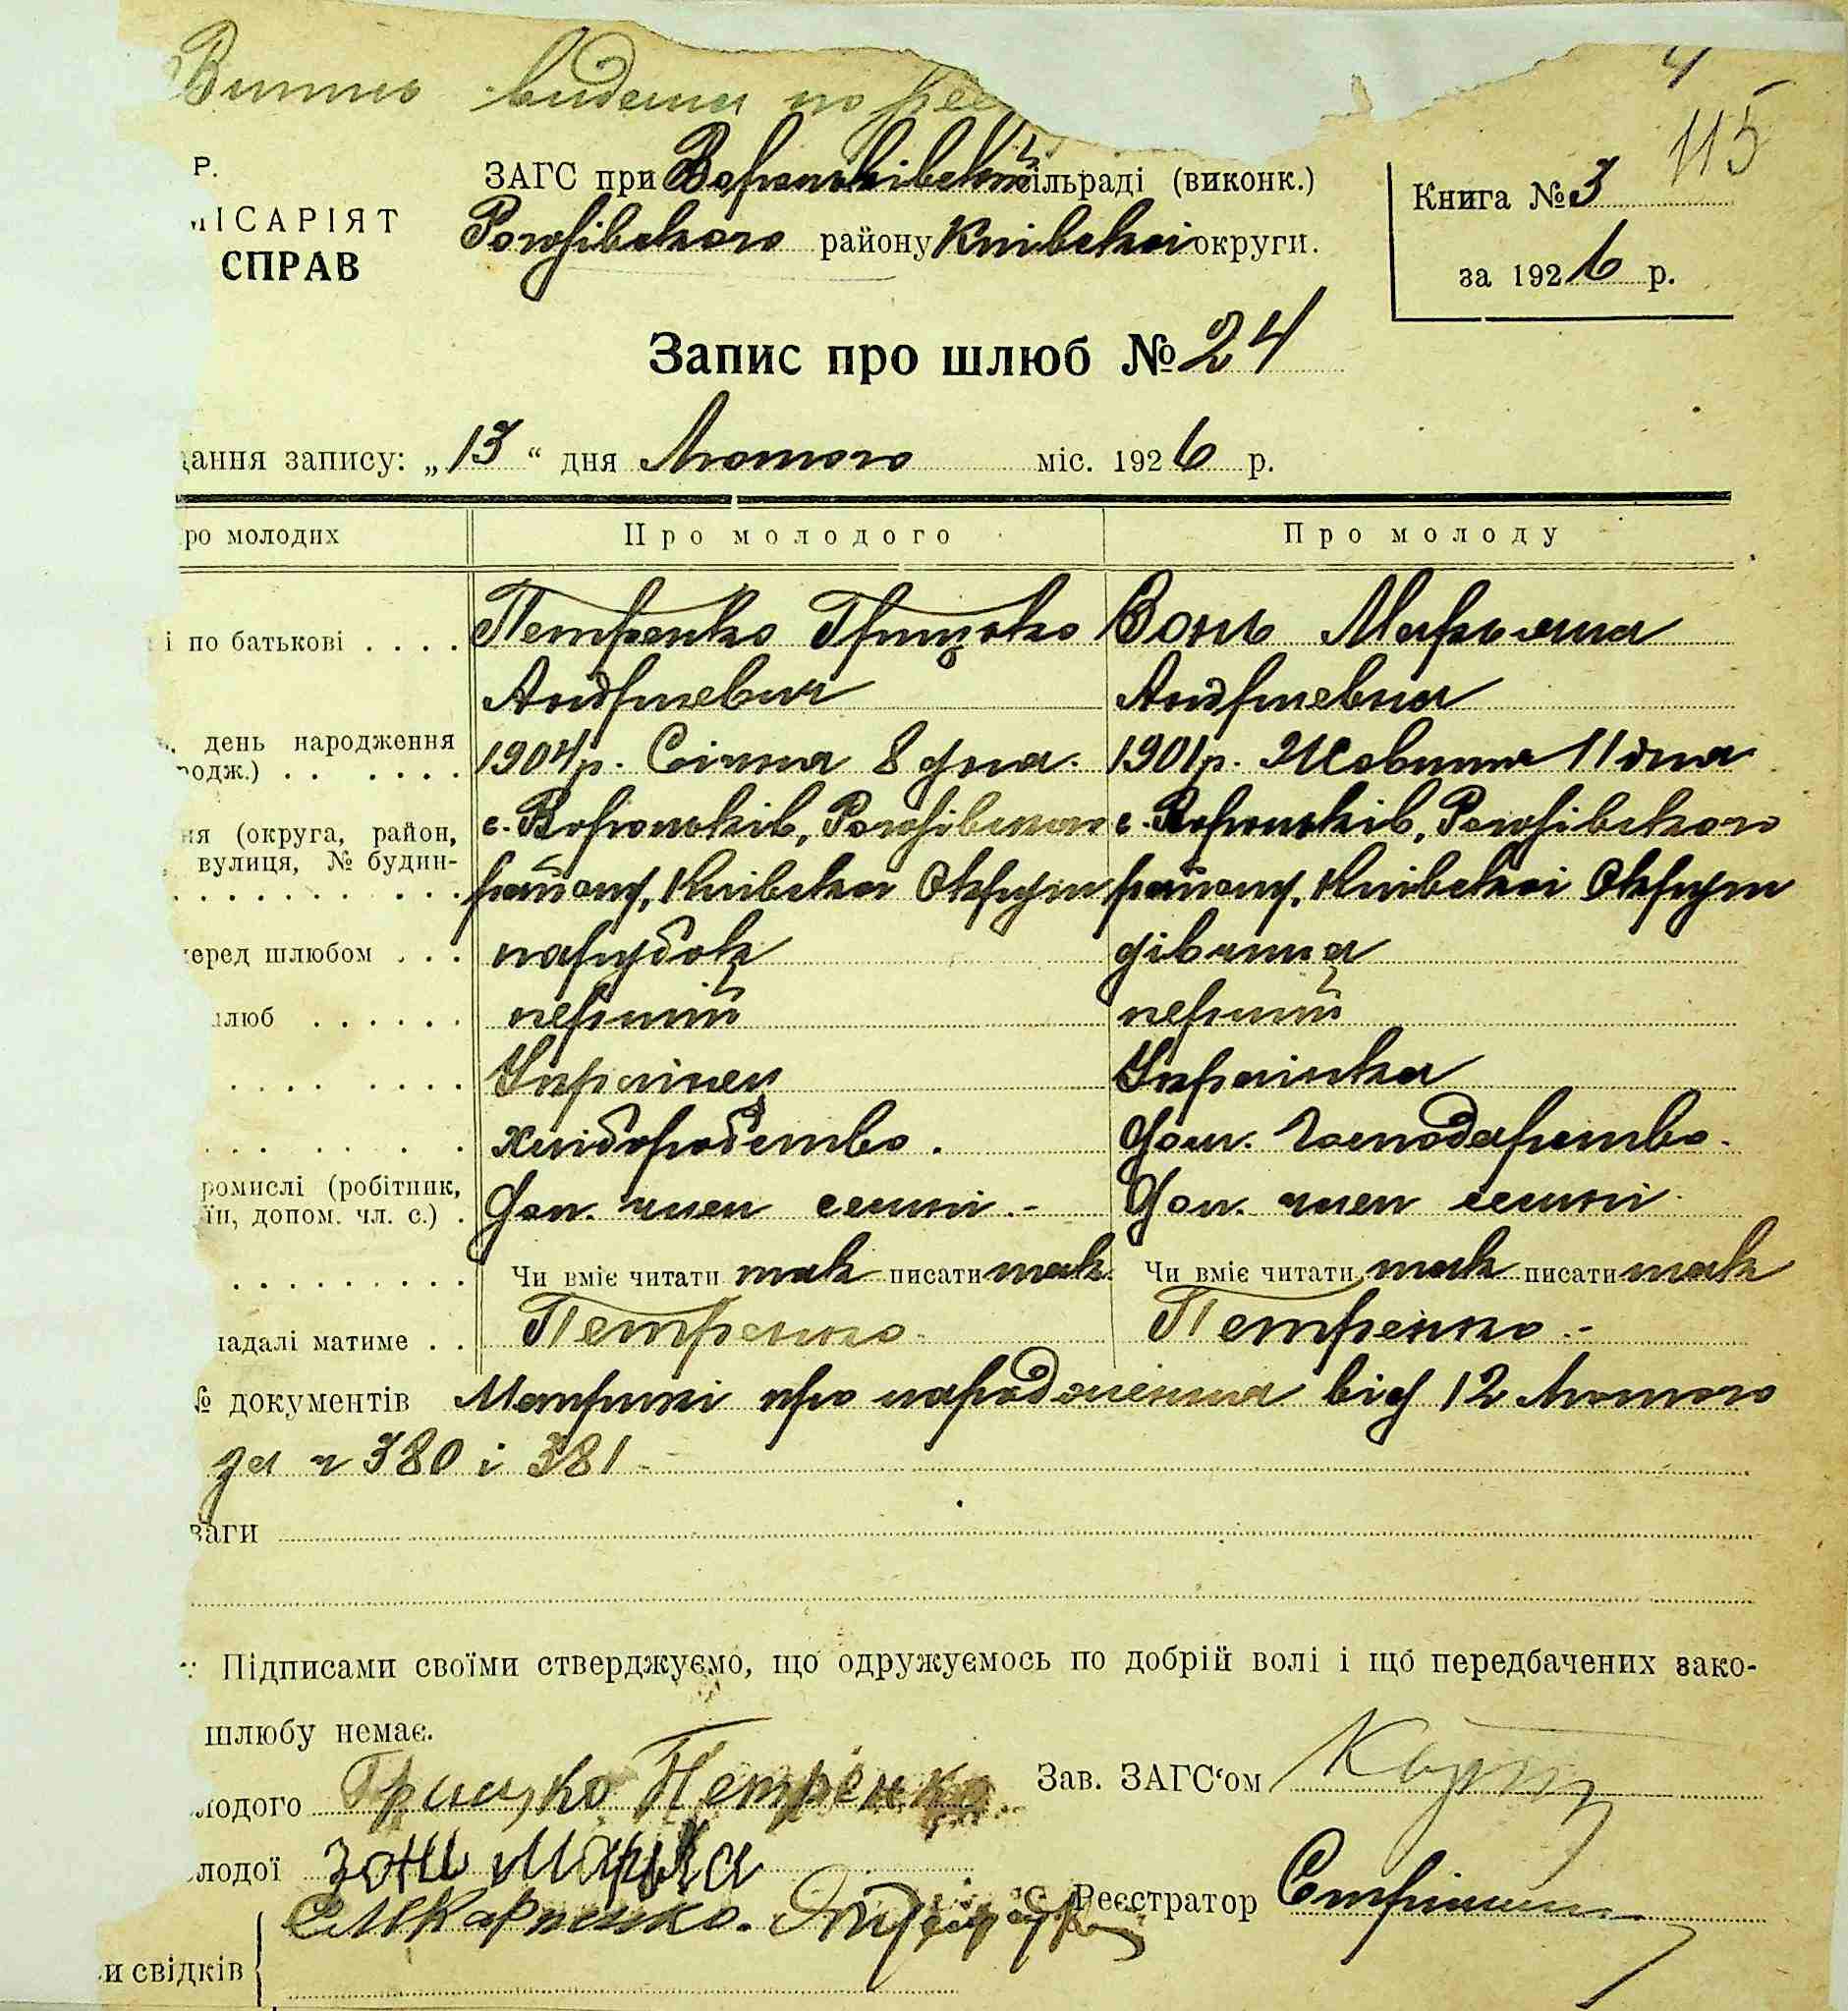 видани по
4
115
Р.
ІСАРІЯТ
СПРАВ
ЗАГС при Вороньківській сільраді (виконк.)
Рогозівського району Київської округи.
Книга № 3
за 1926 р.
Запис про шлюб № 24
дання запису: „13“ дня Лютого міс. 1926 р.
ро молодих Про молодого Про молоду
і по батькові . . . . Петренко Грицько Зонь Марьяна
Андриевич Андриевна
день народження
одж.) . . . . . . 1904 р. Січня 8 дня. 1901 р. Жовтня 11 дня
ня (округа, район, с. Вороньків, Рогозівського с. Вороньків, Рогозівського
вулиця, № будин-
району, Київскої Округи району, Київскої Округи
еред шлюбом . . . парубок дівчина
люб . . . . . . перший перший
Українец Українка
хліборобство. Дом. Господарство.
ромислі (робітник,
їн, допом. чл. с.) . Доп. член семиі.- Доп. член семиі.
Чи вміє читати так писати так. Чи вміє читати так писати так
надалі матиме . . Петренко Петренко.-
№ документів Метрики про народження від 12 Лютого
за ч 380 і 381
ваги
Підписами своїми стверджуємо, що одружуємось по добрій волі і що передбачених зако-
шлюбу немає.
лодого Грицько Петренко Зав. ЗАГС‘ом
лодої Зонь Марьяна
Реєстратор
Карпенко.
и свідків